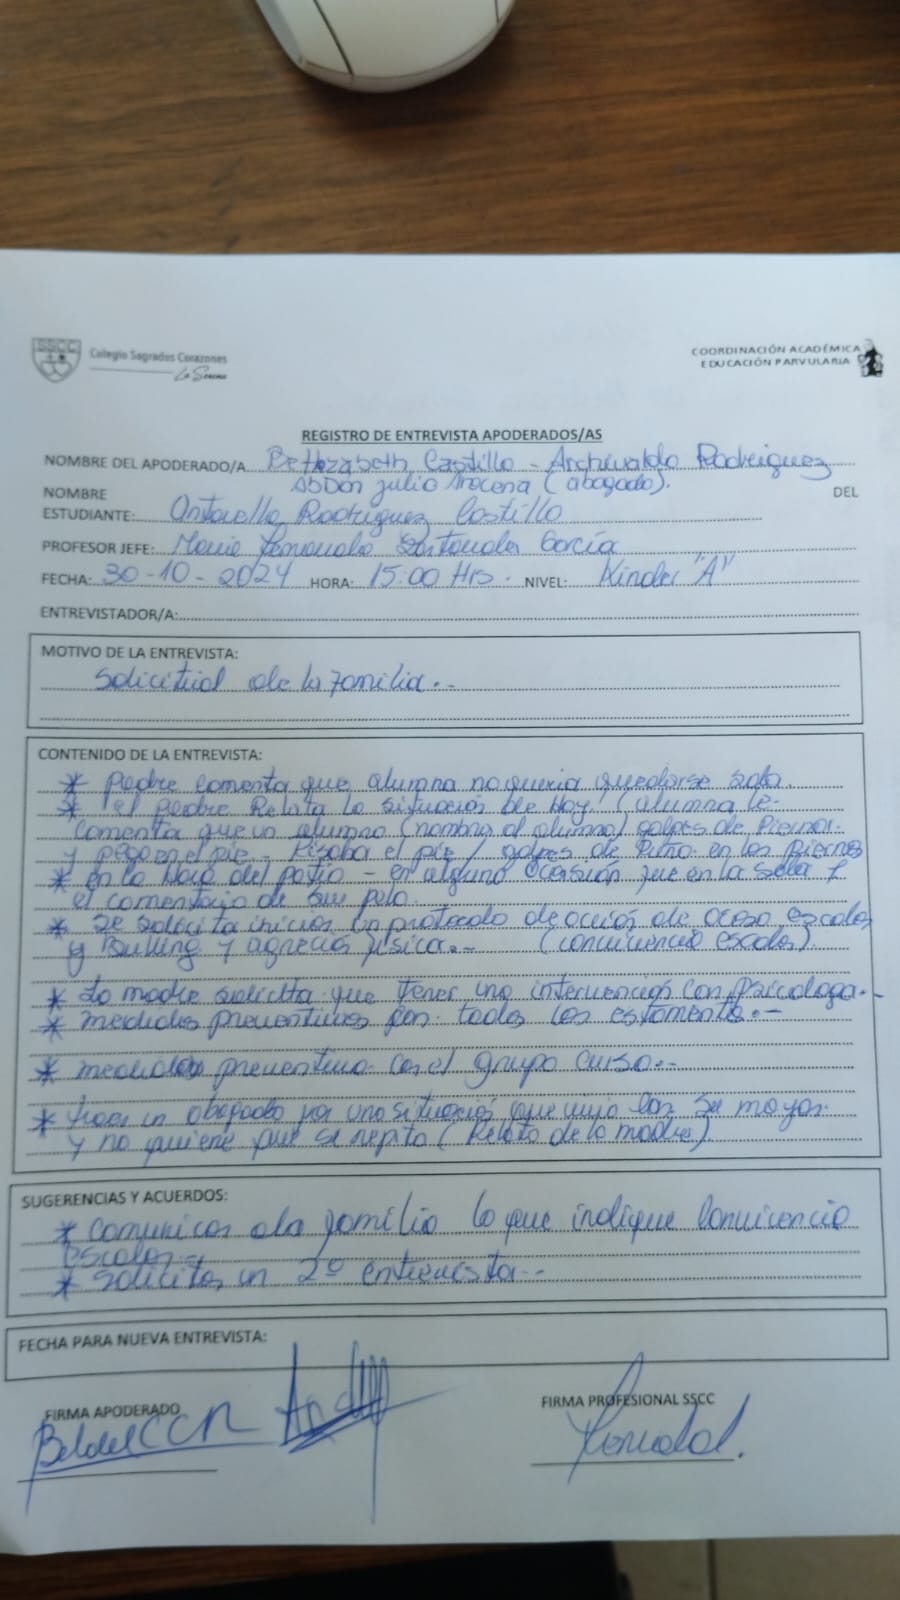 SSCC
Colegio Sagrados Corazones
La Serena
COORDINACIÓN ACADÉMICA
EDUCACIÓN PARVULARIA
REGISTRO DE ENTREVISTA APODERADOS/AS
NOMBRE DEL APODERADO/A Castillo - Archivaldo Rodriguez
Abdón Julio (abogado).
NOMBRE DEL
ESTUDIANTE: Rodriguez Castillo
PROFESOR JEFE: García
FECHA: 30-10-2024 HORA: 15:00 Hrs. NIVEL: Kinder "A"
ENTREVISTADOR/A:
MOTIVO DE LA ENTREVISTA:
Solicitud de la familia.-
CONTENIDO DE LA ENTREVISTA:
* Padre comenta que alumna no queria quedarse sola.
* el padre Relata la situación de Hoy. (alumna le
comenta que un alumno (nombra al alumno) golpes de Piernas
y pego en el pie - el pie / golpes de en las piernas
* en la Hora del patio - en alguna ocasión que en la sala y
el comentario de su pelo.
* se solicita iniciar un protocolo de acción de acoso escolar
y Bulling y agreción física.- (convivencia escolar).
* La madre solicita que tener una intervención con psicologa.-
* medidas preventivas con todos los estamentos.-
* medidas preventiva con el grupo curso.-
* traer un abogado por una situación que vivio con su mayor
y no quiere que se repita (Relato de la madre).
SUGERENCIAS Y ACUERDOS:
* comunicar a la familia lo que indique convivencia
escolar.-
* solicitar un 2º entrevista.-
FECHA PARA NUEVA ENTREVISTA:
FIRMA APODERADO
FIRMA PROFESIONAL SSCC